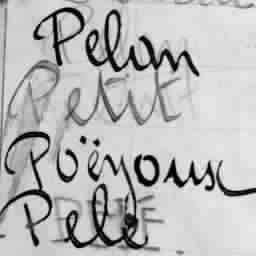 Pelan
Petit
Poëyoux
Pelé